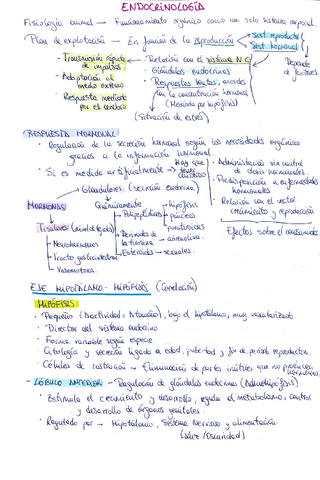 ENDOCRINOLOGÍA
Fisiología animal — Funcionamiento orgánico como un solo sistema corporal.
Plan de explotación — En función de la reproducción
Sist. reproductor
Sist. hormonal
Depende de factores
- Transmisión rápida de impulsos
- Adaptación al medio externo
- Respuesta mediada por el cerebro
- Relación con el sistema N.C
- Glándulas endocrinas
- Respuestas lentas, acordes con la concentración hormonal
(Mediada por hipófisis)
(Situación de estrés)
RESPUESTA HORMONAL
· Regulación de la secreción hormonal según las necesidades orgánicas
gracias a la información hormonal.
· Si es medido artificialmente → Hay que tener cuidado
· Administración sin control de dosis hormonales
· Predisposición a enfermedades hormonales
· Relación con el sector crecimiento y reproducción
Efectos sobre el consumidor
HORMONAS
Glandulares (secreción endocrina)
Químicamente
- Polipeptídicas
hipófisis
páncreas
paratiroides
- Derivados de la tirosina - adrenalina.
- Esteroides - sexuales.
Tisulares
- Neurohormonas
- Tracto gastrointestinal
- Vasomotoras.
EJE HIPOTÁLAMO - HIPÓFISIS (Correlación)
HIPÓFISIS
· Pequeño, bajo el hipotálamo, muy vascularizado.
· Director del sistema endocrino
· Forma variable según especie
· Citología y secreción ligada a edad, pubertad y fin de periodo reproductor.
· Células de castración - Eliminación de partes inútiles que no producen hormonas.
- LÓBULO ANTERIOR - Regulación de glándulas endocrinas (Adenohipófisis)
· Estimula el crecimiento y desarrollo, regula el metabolismo, control
y desarrollo de órganos genitales.
· Regulado por → Hipotálamo, Sistema Nervioso y alimentación.
(Luz/Oscuridad)